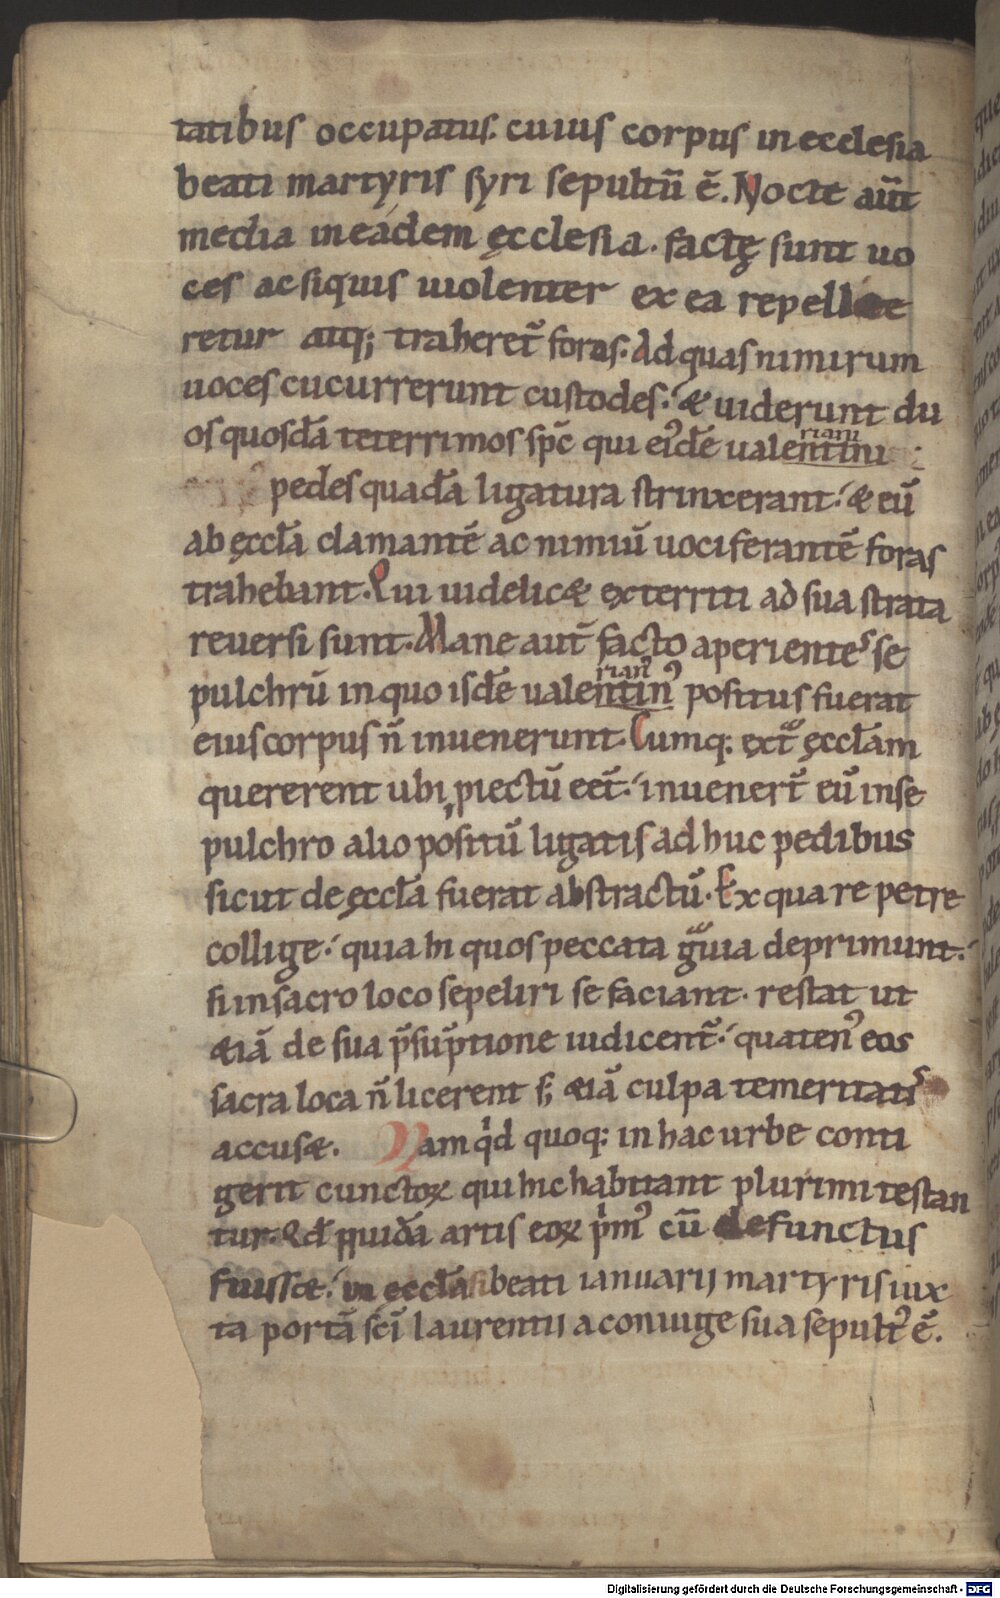 tatibus occupatus. cuius corpus in ecclesia
beati martyris syri sepultū ē. Nocte aūt
media in eadem ęcclesia. factę sunt uo
ces ac siquis uiolenter ex ea repelle
retur atq; traheret̄ foras. Ad quas nimirum
uoces cucurrerunt custodes. & uiderunt du
os quosdā teterrimos sp̄c qui ei'dē ualentini
riani
pedes quadā ligatura strinxerant. & eū
ab ęccl̄a clamantē ac nimiū uociferantē foras
trahebant. Qui uidelic& exterriti ad sua strata
reuersi sunt. Mane aut̄ facto aperientes se
pulchrū in quo isdē ualentin᾽ positus fuerat
rian᾽
eius corpus n̄ inuenerunt. Cumq; ext̄ ęccl̄am
quererent ubi piectū eet̄. inuenert̄ eū in se
pulchro alio positū ligatis ad huc pedibus
sicut de ęccl̄a fuerat abstractū. Ex qua re petre
collige. quia hi quos peccata guia deprimunt.
si in sacro loco sepeliri se faciant. restat ut
&iā de sua p̄sūptione iudicent̄. quaten᾽ eos
sacra loca n̄ licerent s; &iā culpa temeritatis
accus&. Nam qd quoq; in hac urbe conti
gerit cunctoꝝ qui hic habitant plurimi testan
tur. Qd̄ quidā artis eoꝝ pm᾽ cū defunctus
fuiss&. in ęccl̄a beati ianuarij martyris iux
ta portā sc̄i laurentij a coniuge sua sepult᾽ ē.
Digitalisierung gefördert durch die Deutsche Forschungsgemeinschaft - DFG